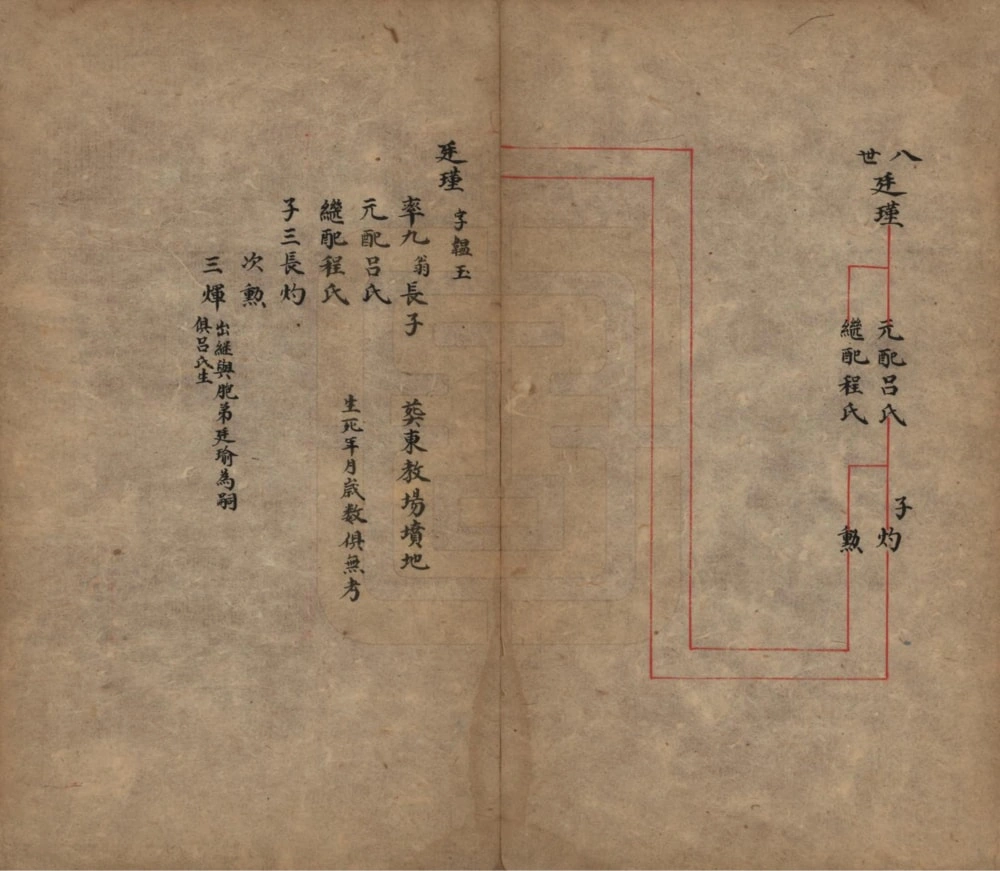 八世
廷瑾
元配呂氏
繼配程氏
子灼
勲
廷瑾
字韞玉
率九翁長子
葬東教場墳地
元配呂氏
生死年月歲数俱無考
繼配程氏
子三長灼
次勲
三煇
出繼與胞弟廷瑜為嗣
俱呂氏生